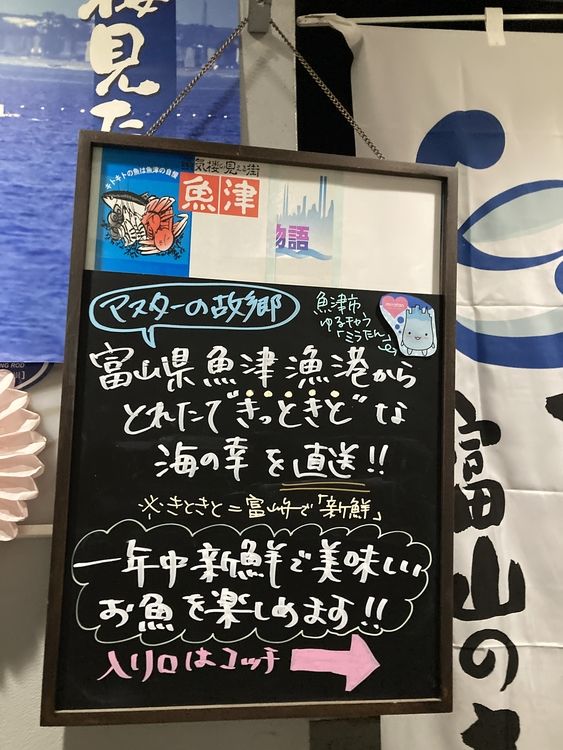 楼見た
キトキトの魚は魚津の自慢
気楼の見える街
魚津
物語
マスターの故郷
魚津市
ゆるキャラ
「ミラたん」
富山県魚津漁港から
とれたて"きっときと"な
海の幸を直送!!
※きときと=富山弁で「新鮮」
一年中新鮮で美味しい
お魚を楽しめます!!
入り口はコッチ
富山の